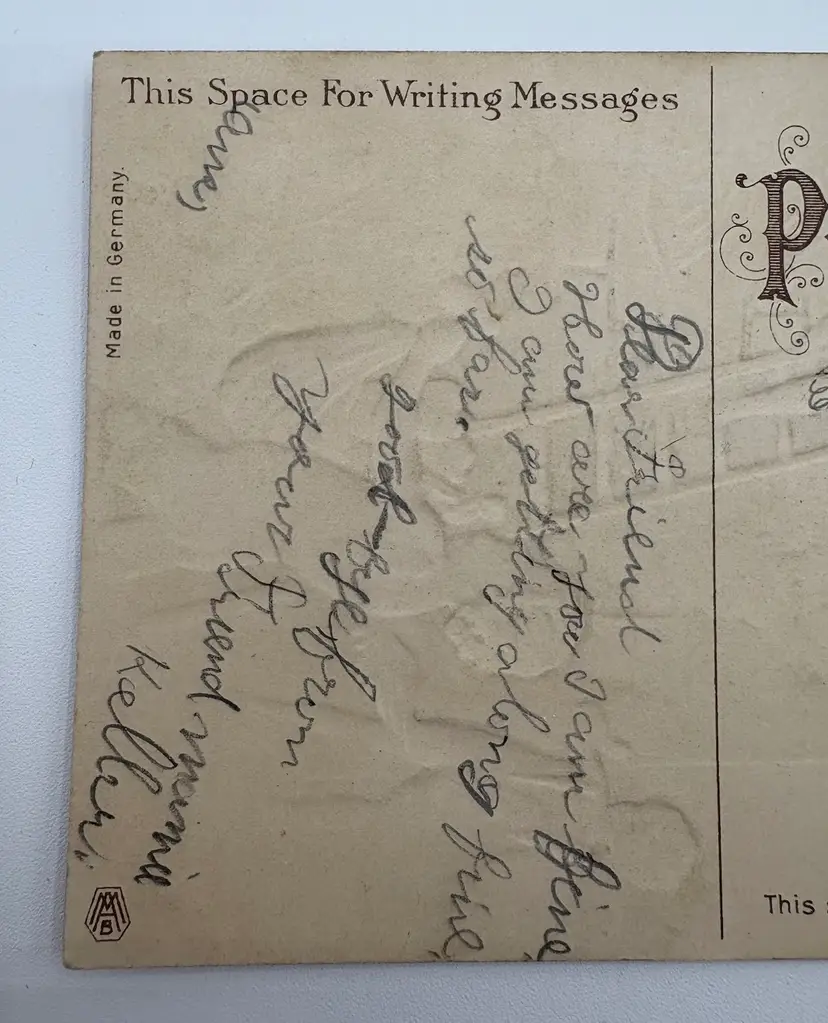 This Space For Writing Messages
Made in Germany.
Dear Friend
How are you I am fine
I am getting along fine
so far.
Good-bye from
Your Friend Mamie
Keller.
MAB
P
This